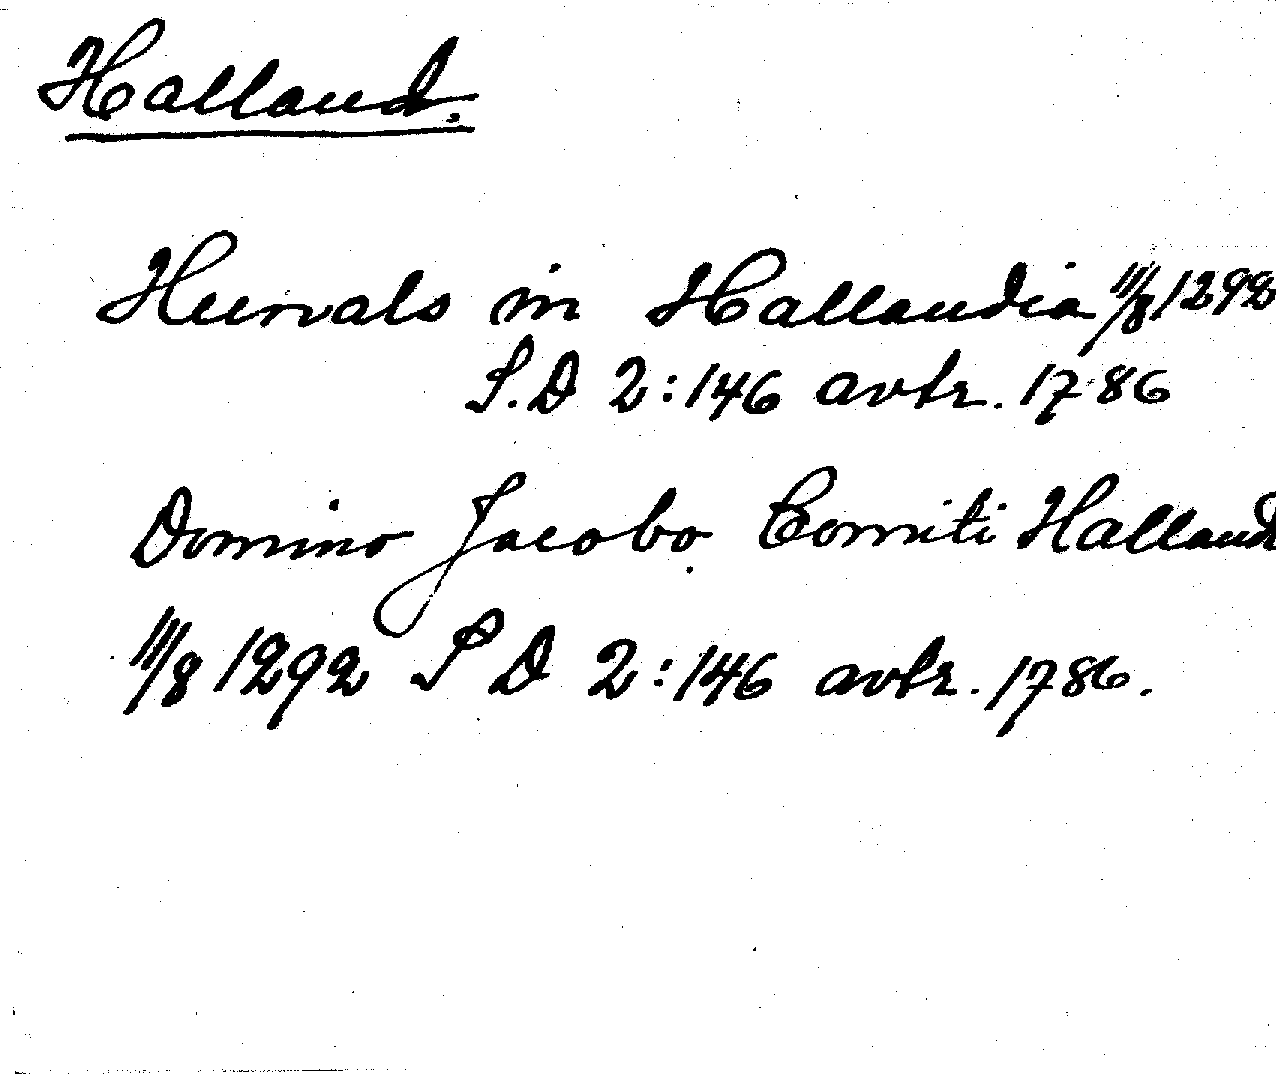 Halland.
Hunals in Hallandia 11/8 1292
S.D 2:146 avtr. 1786
Domino Jacobo Comiti Halland
11/8 1292 S D 2:146 avtr. 1786.